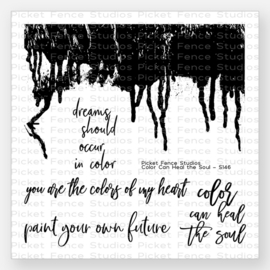 Picket Fence Studios
dreams
should
occur
in color
Picket Fence Studios
Color Can Heal the Soul – S146
you are the colors of my heart
color
can heal
the soul
paint your own future